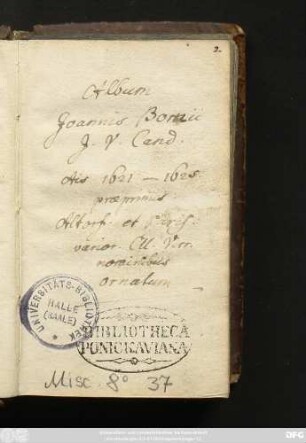 2.
Album
Joannis Bonzii
J. V. Cand.
Ais 1621 — 1625.
præprimis
Altorf. et Paris.
varior. Cll. Virr.
nominibus
ornatum
UNIVERSITÄTS-BIBLIOTHEK
HALLE
(SAALE)
BIBLIOTHECA
PONICKAVIANA
Misc. 8° 37